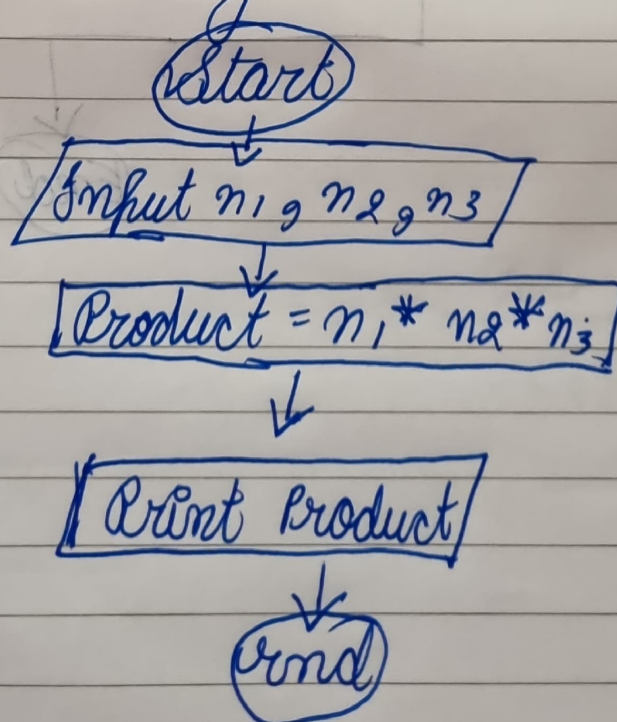 Start
Input n1, n2, n3
Product = n1 * n2 * n3
Print Product
End